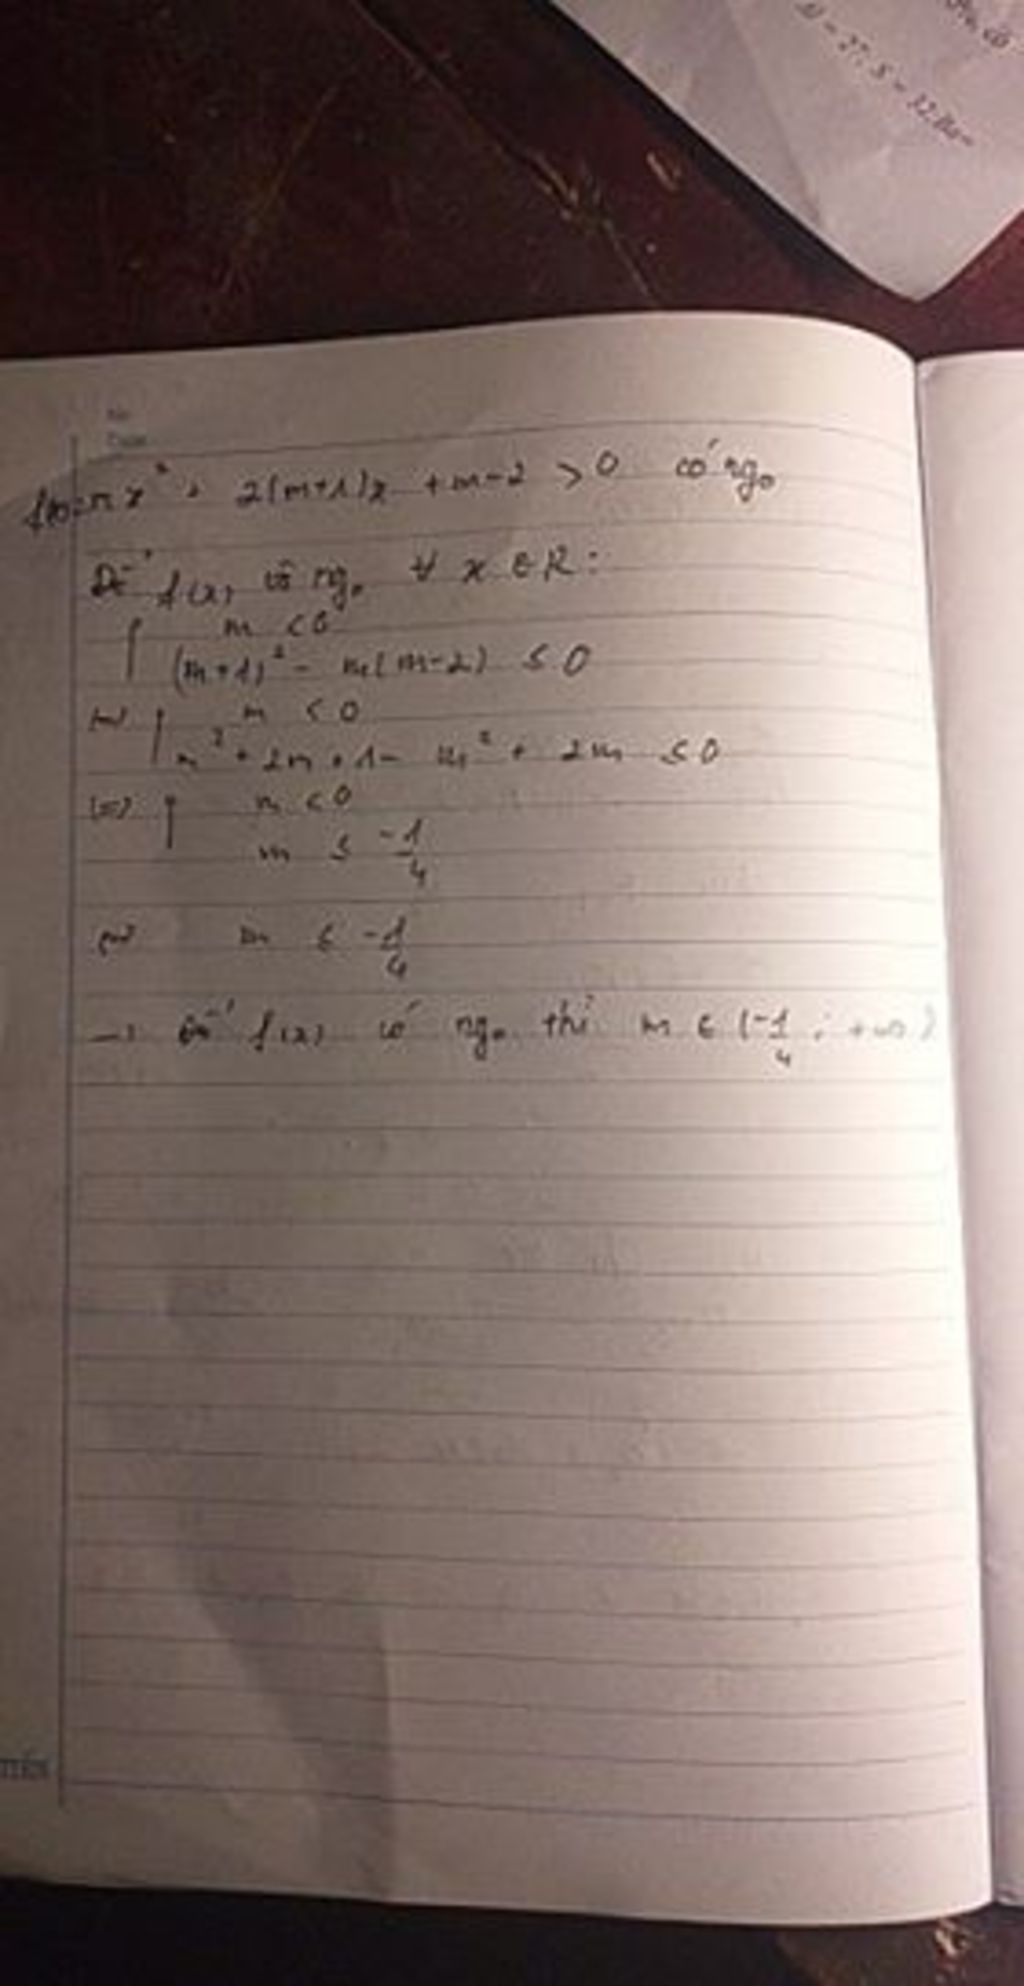 N = 27. S = 32.Ba=
No
Date
f(x)=mx² + 2(m+1)x + m-2 > 0 có ng₀
Để f(x) vô ng₀ ∀ x ∈ R:
m < 0
(m+1)² - m(m-2) ≤ 0
(=) m < 0
m² + 2m + 1 - m² + 2m ≤ 0
(=) m < 0
m ≤ -1/4
(=) m ≤ -1/4
→ Để f(x) có ng₀ thì m ∈ (-1/4 ; +∞)